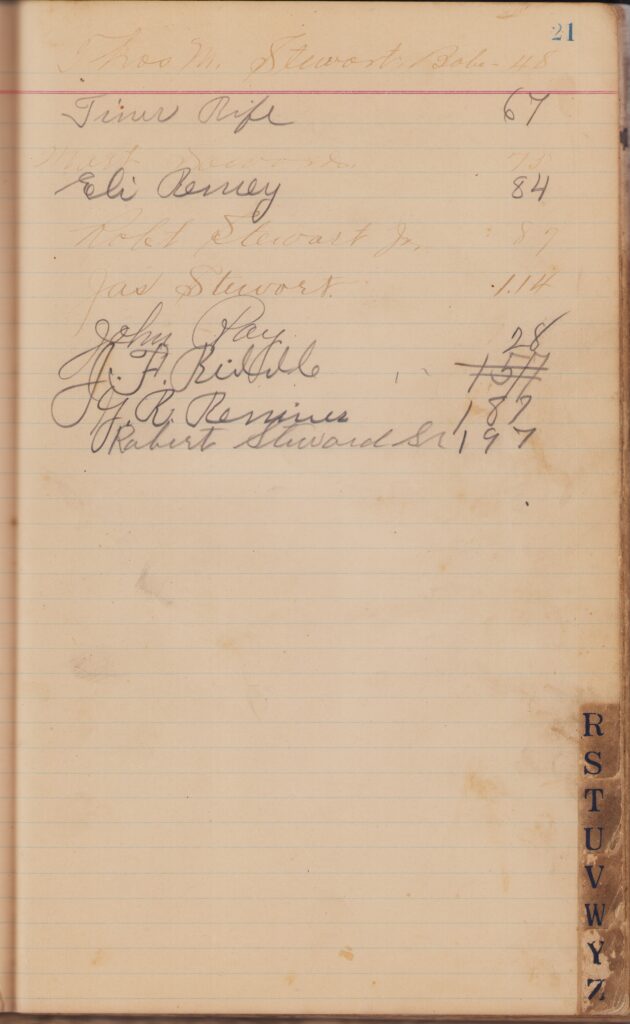 21
Thos M. Stewart Bob - 48
Tiner Rife 67
75
Eli Remey 84
Robt Stewart Jr. 87
Jas Stewort. 114
John Ray 28
J. F. Riddle 157
J. R. Remines 187
Robert Steward Sr 197
R
S
T
U
V
W
Y
Z